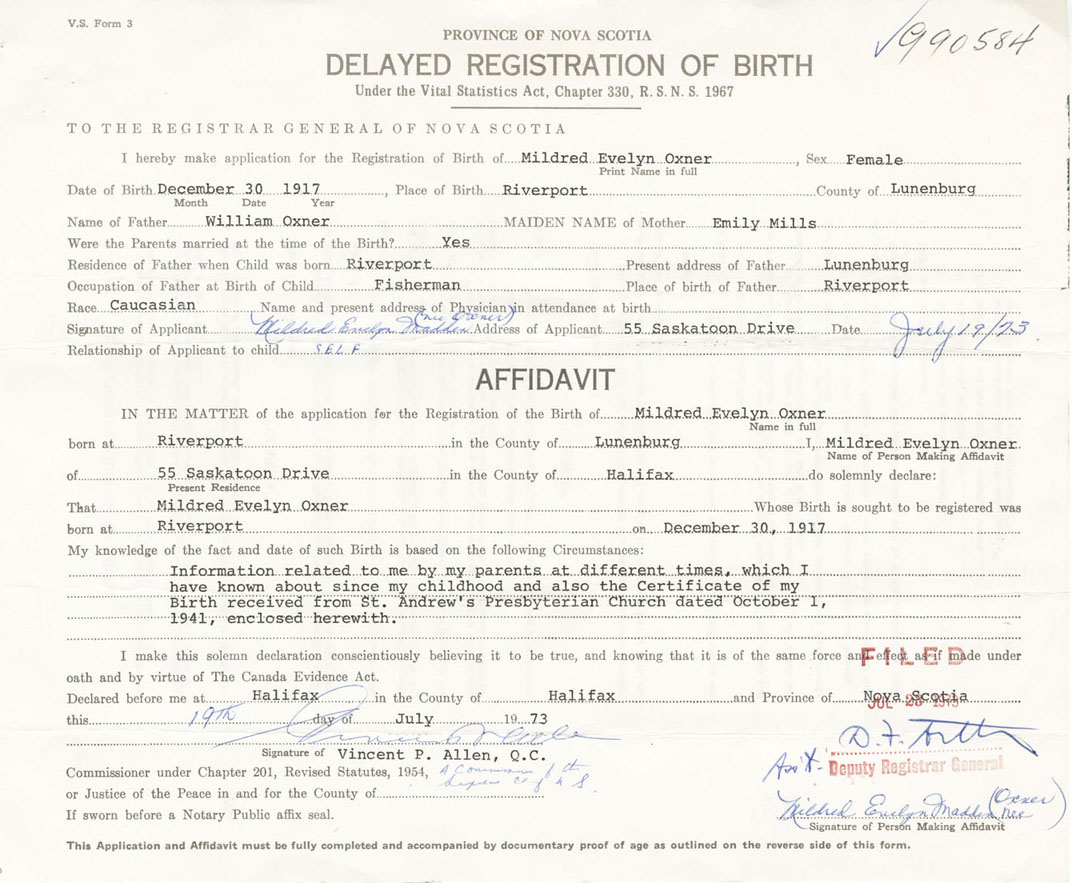 V.S. Form 3
√990584
PROVINCE OF NOVA SCOTIA
DELAYED REGISTRATION OF BIRTH
Under the Vital Statistics Act, Chapter 330, R.S.N.S. 1967
TO THE REGISTRAR GENERAL OF NOVA SCOTIA
I hereby make application for the Registration of Birth of Mildred Evelyn Oxner, Sex Female
Print Name in full
Date of Birth December 30 1917, Place of Birth Riverport County of Lunenburg
Month Date Year
Name of Father William Oxner MAIDEN NAME of Mother Emily Mills
Were the Parents married at the time of the Birth? Yes
Residence of Father when Child was born Riverport Present address of Father Lunenburg
Occupation of Father at Birth of Child Fisherman Place of birth of Father Riverport
Race Caucasian Name and present address of Physician in attendance at birth
Signature of Applicant Mildred Evelyn Madden (nee Oxner) Address of Applicant 55 Saskatoon Drive Date July 19/73
Relationship of Applicant to child SELF
AFFIDAVIT
IN THE MATTER of the application for the Registration of the Birth of Mildred Evelyn Oxner
Name in full
born at Riverport in the County of Lunenburg I, Mildred Evelyn Oxner
Name of Person Making Affidavit
of 55 Saskatoon Drive in the County of Halifax do solemnly declare:
Present Residence
That Mildred Evelyn Oxner Whose Birth is sought to be registered was
born at Riverport on December 30, 1917
My knowledge of the fact and date of such Birth is based on the following Circumstances:
Information related to me by my parents at different times, which I
have known about since my childhood and also the Certificate of my
Birth received from St. Andrew's Presbyterian Church dated October 1,
1941, enclosed herewith.
I make this solemn declaration conscientiously believing it to be true, and knowing that it is of the same force and effect as if made under
FILED
oath and by virtue of The Canada Evidence Act.
Declared before me at Halifax in the County of Halifax and Province of Nova Scotia
this 19th day of July 1973
Signature of Vincent P. Allen, Q.C.
Commissioner under Chapter 201, Revised Statutes, 1954, A Commissioner of the
Supreme Ct of N S.
or Justice of the Peace in and for the County of
If sworn before a Notary Public affix seal.
D.F.
Ass't. Deputy Registrar General
Mildred Evelyn Madden (Oxner nee)
Signature of Person Making Affidavit
This Application and Affidavit must be fully completed and accompanied by documentary proof of age as outlined on the reverse side of this form.